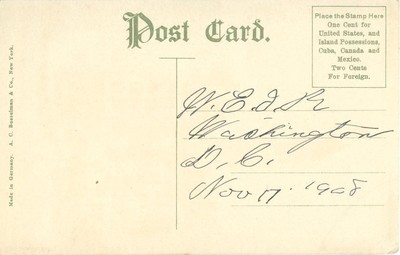 Post Card.
Place the Stamp Here
One Cent for
United States, and
Island Possessions,
Cuba, Canada and
Mexico.
Two Cents
For Foreign.
W. E. d R
Washington
D. C.
Nov 17. 1908
Made in Germany. A. C. Bosselman & Co., New York.